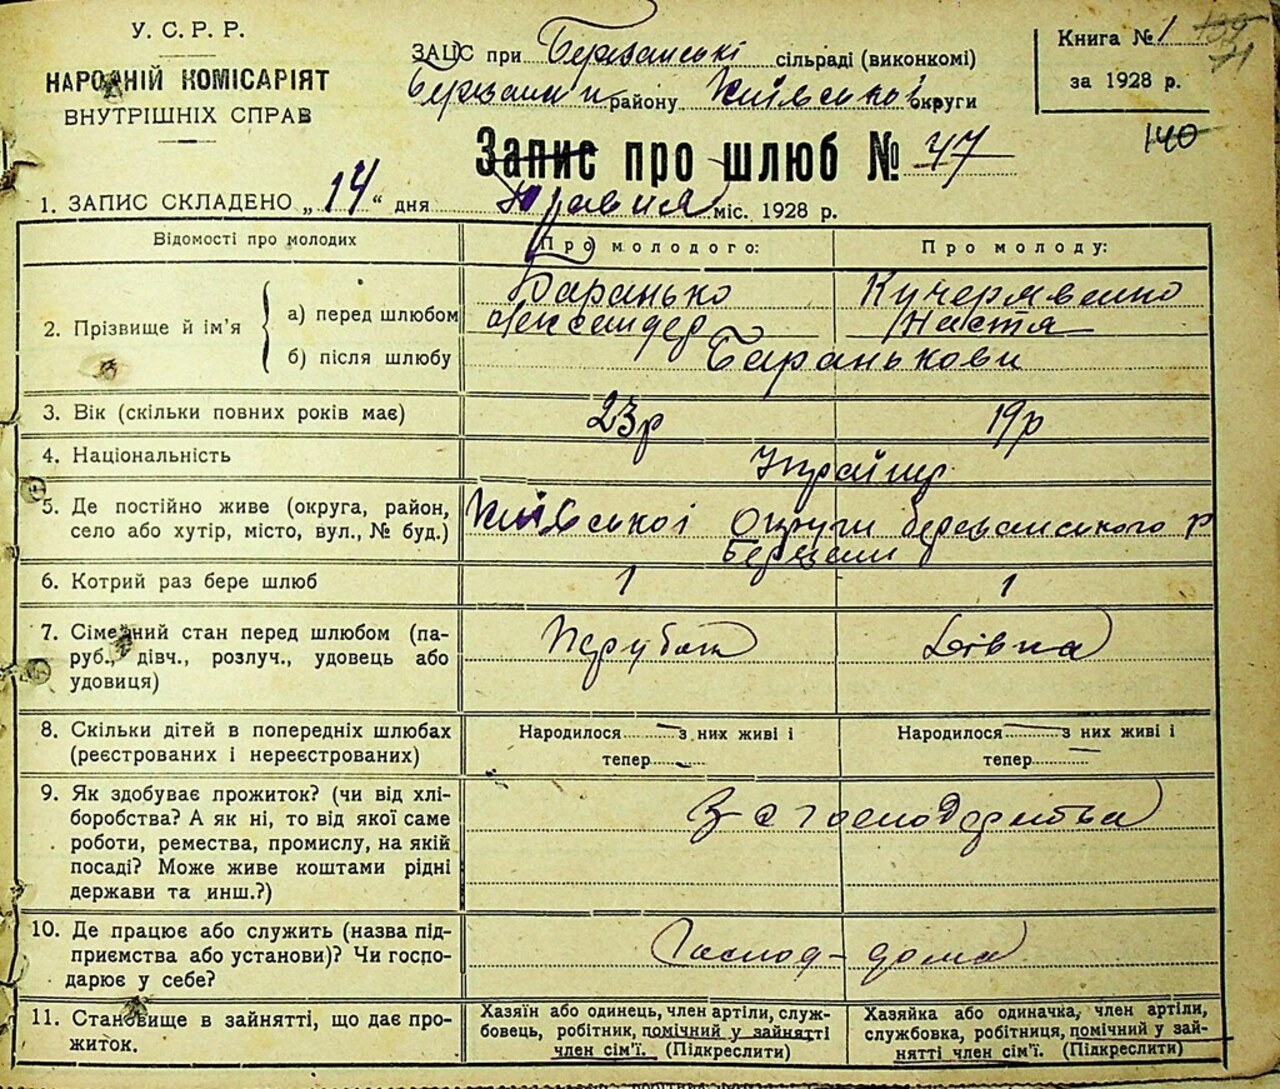 У. С. Р. Р.
НАРОДНІЙ КОМІСАРІЯТ
ВНУТРІШНІХ СПРАВ
ЗАЦС при Березанські сільраді (виконкомі)
району Київської округи
Книга № 1
за 1928 р.
140
Запис про шлюб № 47
1. ЗАПИС СКЛАДЕНО „ 14 “ дня Травня міс. 1928 р.
Відомості про молодих
Про молодого:
Про молоду:
2. Прізвище й ім'я
а) перед шлюбом
Баранько
Олександер
Кучерявенко
Настя
б) після шлюбу
Баранькови
3. Вік (скільки повних років має)
23р
19р
4. Національність
Українц
5. Де постійно живе (округа, район,
село або хутір, місто, вул., № буд.)
Київської Округи березанського р
Березані
6. Котрий раз бере шлюб
1
1
7. Сімейний стан перед шлюбом (па-
руб., дівч., розлуч., удовець або
удовиця)
Парубок
Дівка
8. Скільки дітей в попередніх шлюбах
(реєстрованих і нереєстрованих)
Народилося з них живі і
тепер
Народилося з них живі і
тепер
9. Як здобуває прожиток? (чи від хлі-
боробства? А як ні, то від якої саме
роботи, ремества, промислу, на якій
посаді? Може живе коштами рідні
держави та инш.?)
З с господарства
10. Де працює або служить (назва під-
приємства або установи)? Чи госпо-
дарює у себе?
Господ - дома
11. Становище в зайнятті, що дає про-
житок.
Хазяїн або одинець, член артілі, служ-
бовець, робітник, помічний у зайнятті
член сім'ї. (Підкреслити)
Хазяйка або одиначка, член артіли,
службовка, робітниця, помічний у зай-
нятті член сім'ї. (Підкреслити)